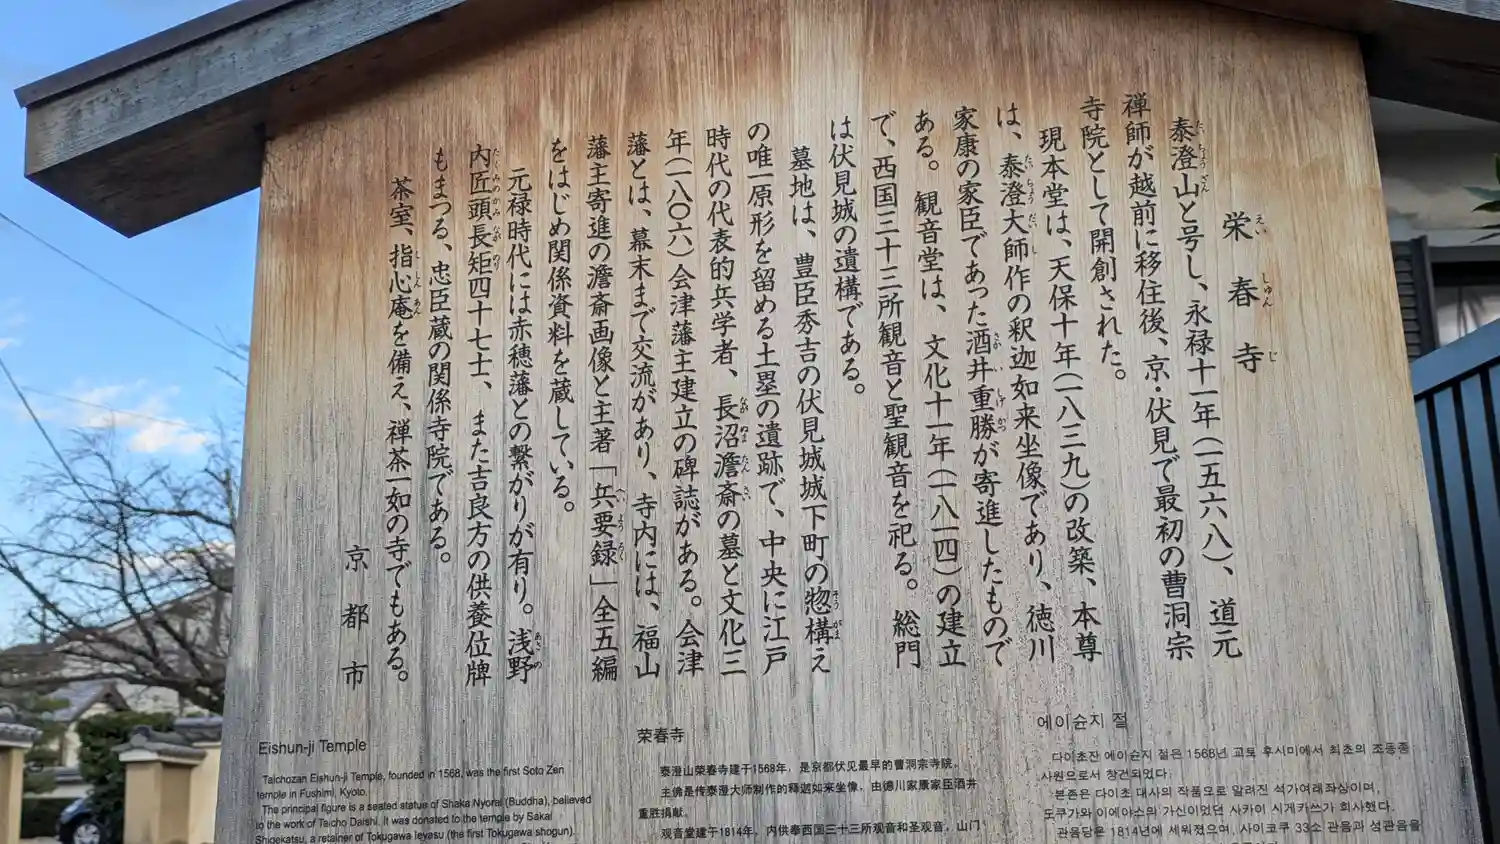 栄春寺
泰澄山と号し、永禄十一年(一五六八)、道元
禅師が越前に移住後、京・伏見で最初の曹洞宗
寺院として開創された。
現本堂は、天保十年(一八三九)の改築、本尊
は、泰澄大師作の釈迦如来坐像であり、徳川
家康の家臣であった酒井重勝が寄進したもので
ある。観音堂は、文化十一年(一八一四)の建立
で、西国三十三所観音と聖観音を祀る。総門
は伏見城の遺構である。
墓地は、豊臣秀吉の伏見城城下町の惣構え
の唯一原形を留める土塁の遺跡で、中央に江戸
時代の代表的兵学者、長沼澹斎の墓と文化三
年(一八〇六)会津藩主建立の碑誌がある。会津
藩とは、幕末まで交流があり、寺内には、福山
藩主寄進の澹斎画像と主著「兵要録」全五編
をはじめ関係資料を蔵している。
元禄時代には赤穂藩との繋がりが有り。浅野
内匠頭長矩四十七士、また吉良方の供養位牌
もまつる、忠臣蔵の関係寺院である。
茶室、指心庵を備え、禅茶一如の寺でもある。
京都市
Eishun-ji Temple
Taichozan Eishun-ji Temple, founded in 1568, was the first Soto Zen
temple in Fushimi, Kyoto.
The principal figure is a seated statue of Shaka Nyorai (Buddha), believed
to the work of Taicho Daishi. It was donated to the temple by Sakai
Shigekatsu, a retainer of Tokugawa Ieyasu (the first Tokugawa shogun).
荣春寺
泰澄山荣春寺建于1568年，是京都伏见最早的曹洞宗寺院，
主佛是传泰澄大师制作的释迦如来坐像，由德川家康家臣酒井
重胜捐献。
观音堂建于1814年，内供奉西国三十三所观音和圣观音，山门
에이슌지 절
다이초잔 에이슌지 절은 1568년 교토 후시미에서 최초의 조동종
사원으로서 창건되었다.
본존은 다이초 대사의 작품으로 알려진 석가여래좌상이며,
도쿠가와 이에야스의 가신이었던 사카이 시게카쓰가 희사했다.
관음당은 1814년에 세워졌으며, 사이코쿠 33소 관음과 성관음을